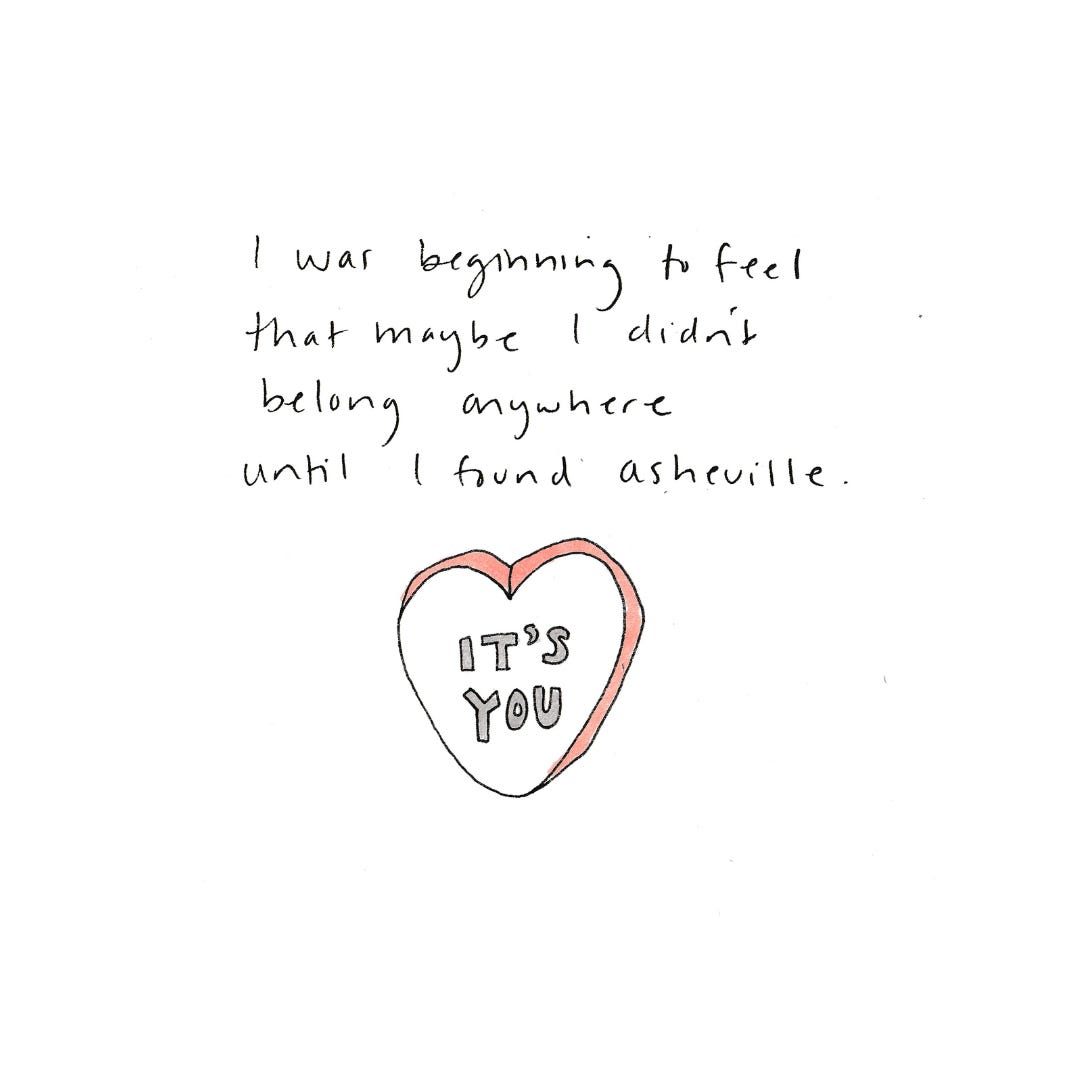 I was beginning to feel
that maybe I didn't
belong anywhere
until I found asheville.
IT'S
YOU